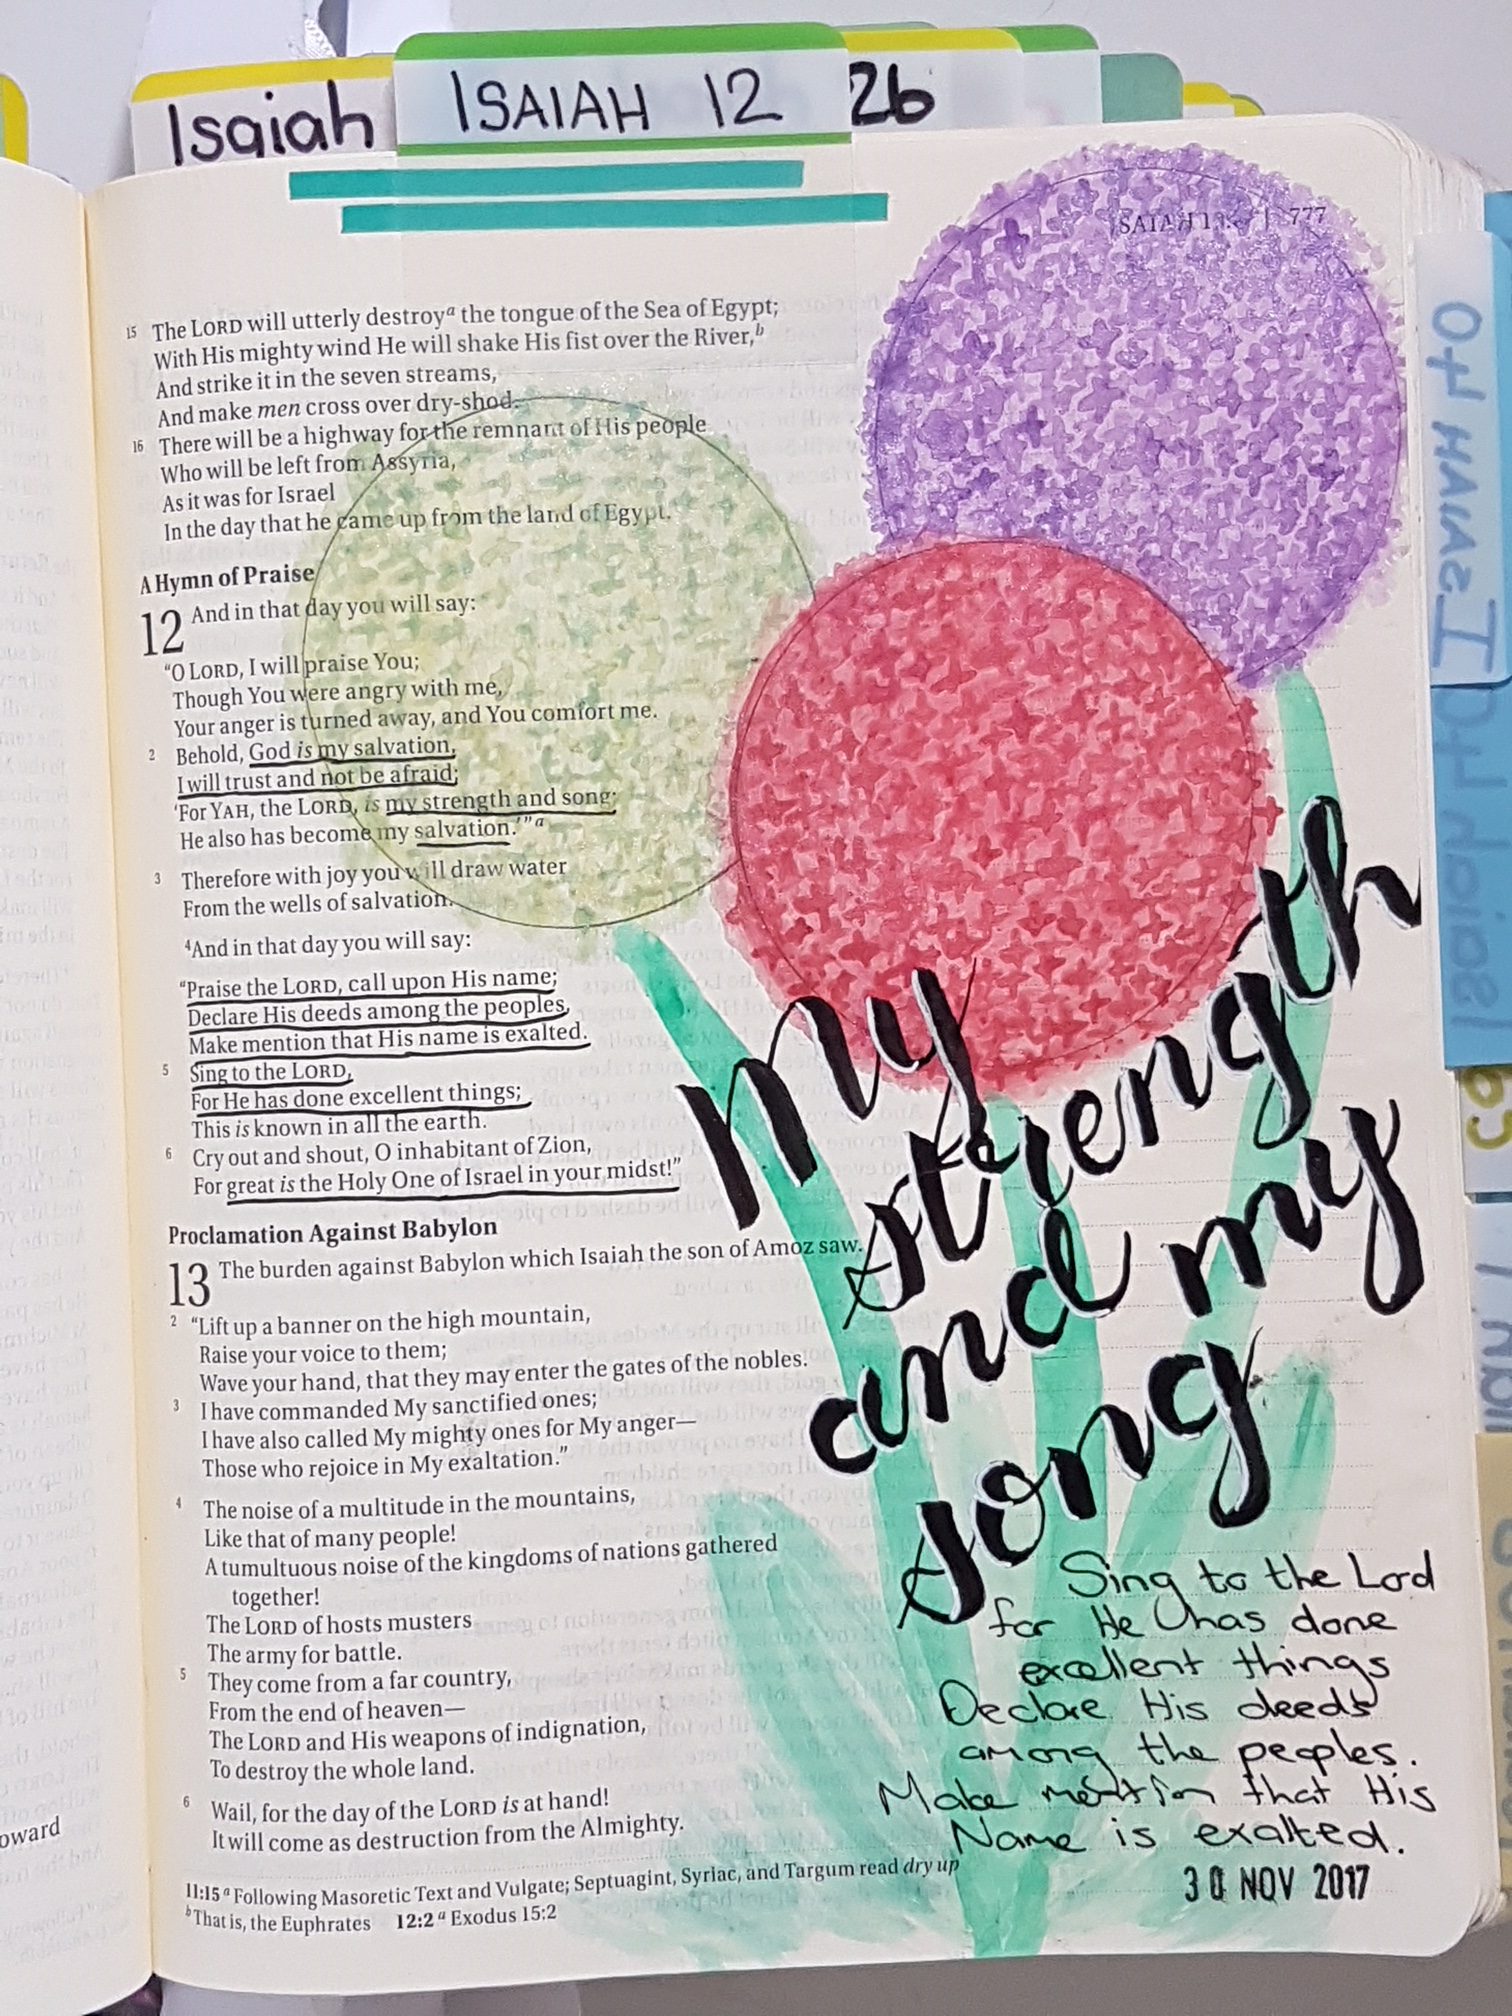 Isaiah
ISAIAH 12
26
777
15 The LORD will utterly destroyᵃ the tongue of the Sea of Egypt;
With His mighty wind He will shake His fist over the River,ᵇ
And strike it in the seven streams,
And make men cross over dry-shod.
16 There will be a highway for the remnant of His people
Who will be left from Assyria,
As it was for Israel
In the day that he came up from the land of Egypt.
A Hymn of Praise
12 And in that day you will say:
“O LORD, I will praise You;
Though You were angry with me,
Your anger is turned away, and You comfort me.
2 Behold, God is my salvation,
I will trust and not be afraid;
‘For YAH, the LORD, is my strength and song;
He also has become my salvation.’”ᵃ
3 Therefore with joy you will draw water
From the wells of salvation.
4And in that day you will say:
“Praise the LORD, call upon His name;
Declare His deeds among the peoples,
Make mention that His name is exalted.
5 Sing to the LORD,
For He has done excellent things;
This is known in all the earth.
6 Cry out and shout, O inhabitant of Zion,
For great is the Holy One of Israel in your midst!”
Proclamation Against Babylon
13 The burden against Babylon which Isaiah the son of Amoz saw.
2 “Lift up a banner on the high mountain,
Raise your voice to them;
Wave your hand, that they may enter the gates of the nobles.
3 I have commanded My sanctified ones;
I have also called My mighty ones for My anger—
Those who rejoice in My exaltation.”
4 The noise of a multitude in the mountains,
Like that of many people!
A tumultuous noise of the kingdoms of nations gathered
together!
The LORD of hosts musters
The army for battle.
5 They come from a far country,
From the end of heaven—
The LORD and His weapons of indignation,
To destroy the whole land.
6 Wail, for the day of the LORD is at hand!
It will come as destruction from the Almighty.
11:15 ᵃ Following Masoretic Text and Vulgate; Septuagint, Syriac, and Targum read dry up
ᵇ That is, the Euphrates 12:2 ᵃ Exodus 15:2
my
strength
and my
song
Sing to the Lord
for He has done
excellent things
Declare His deeds
among the peoples.
Make mention that His
Name is exalted.
30 NOV 2017
ISAIAH 40
Isaiah